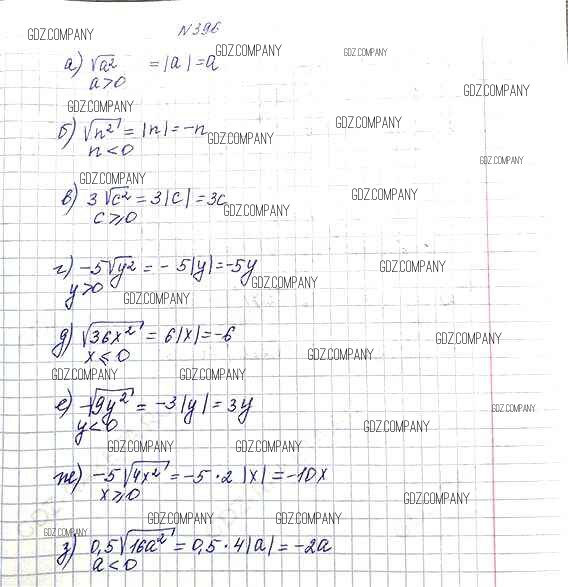 N 396
GDZ.COMPANY
GDZ.COMPANY
GDZ.COMPANY
а) √a² = |a| = a
a>0
GDZ.COMPANY
GDZ.COMPANY
GDZ.COMPANY
б) √n² = |n| = -n
GDZ.COMPANY
n<0
GDZ.COMPANY
GDZ.COMPANY
в) 3√c² = 3|c| = 3c
GDZ.COMPANY
c⩾0
GDZ.COMPANY
г) -5√y² = -5|y| = -5y
GDZ.COMPANY
y>0
GDZ.COMPANY
GDZ.COMPANY
д) √36x² = 6|x| = -6
GDZ.COMPANY
x⩽0
GDZ.COMPANY
GDZ.COMPANY
GDZ.COMPANY
е) -√9y² = -3|y| = 3y
GDZ.COMPANY
y<0
GDZ.COMPANY
GDZ.COMPANY
GDZ.COMPANY
ж) -5√4x² = -5·2|x| = -10x
x⩾0
GDZ.COMPANY
GDZ.COMPANY
GDZ.COMPANY
GDZ.COMPANY
з) 0,5√16a² = 0,5·4|a| = -2a
a<0